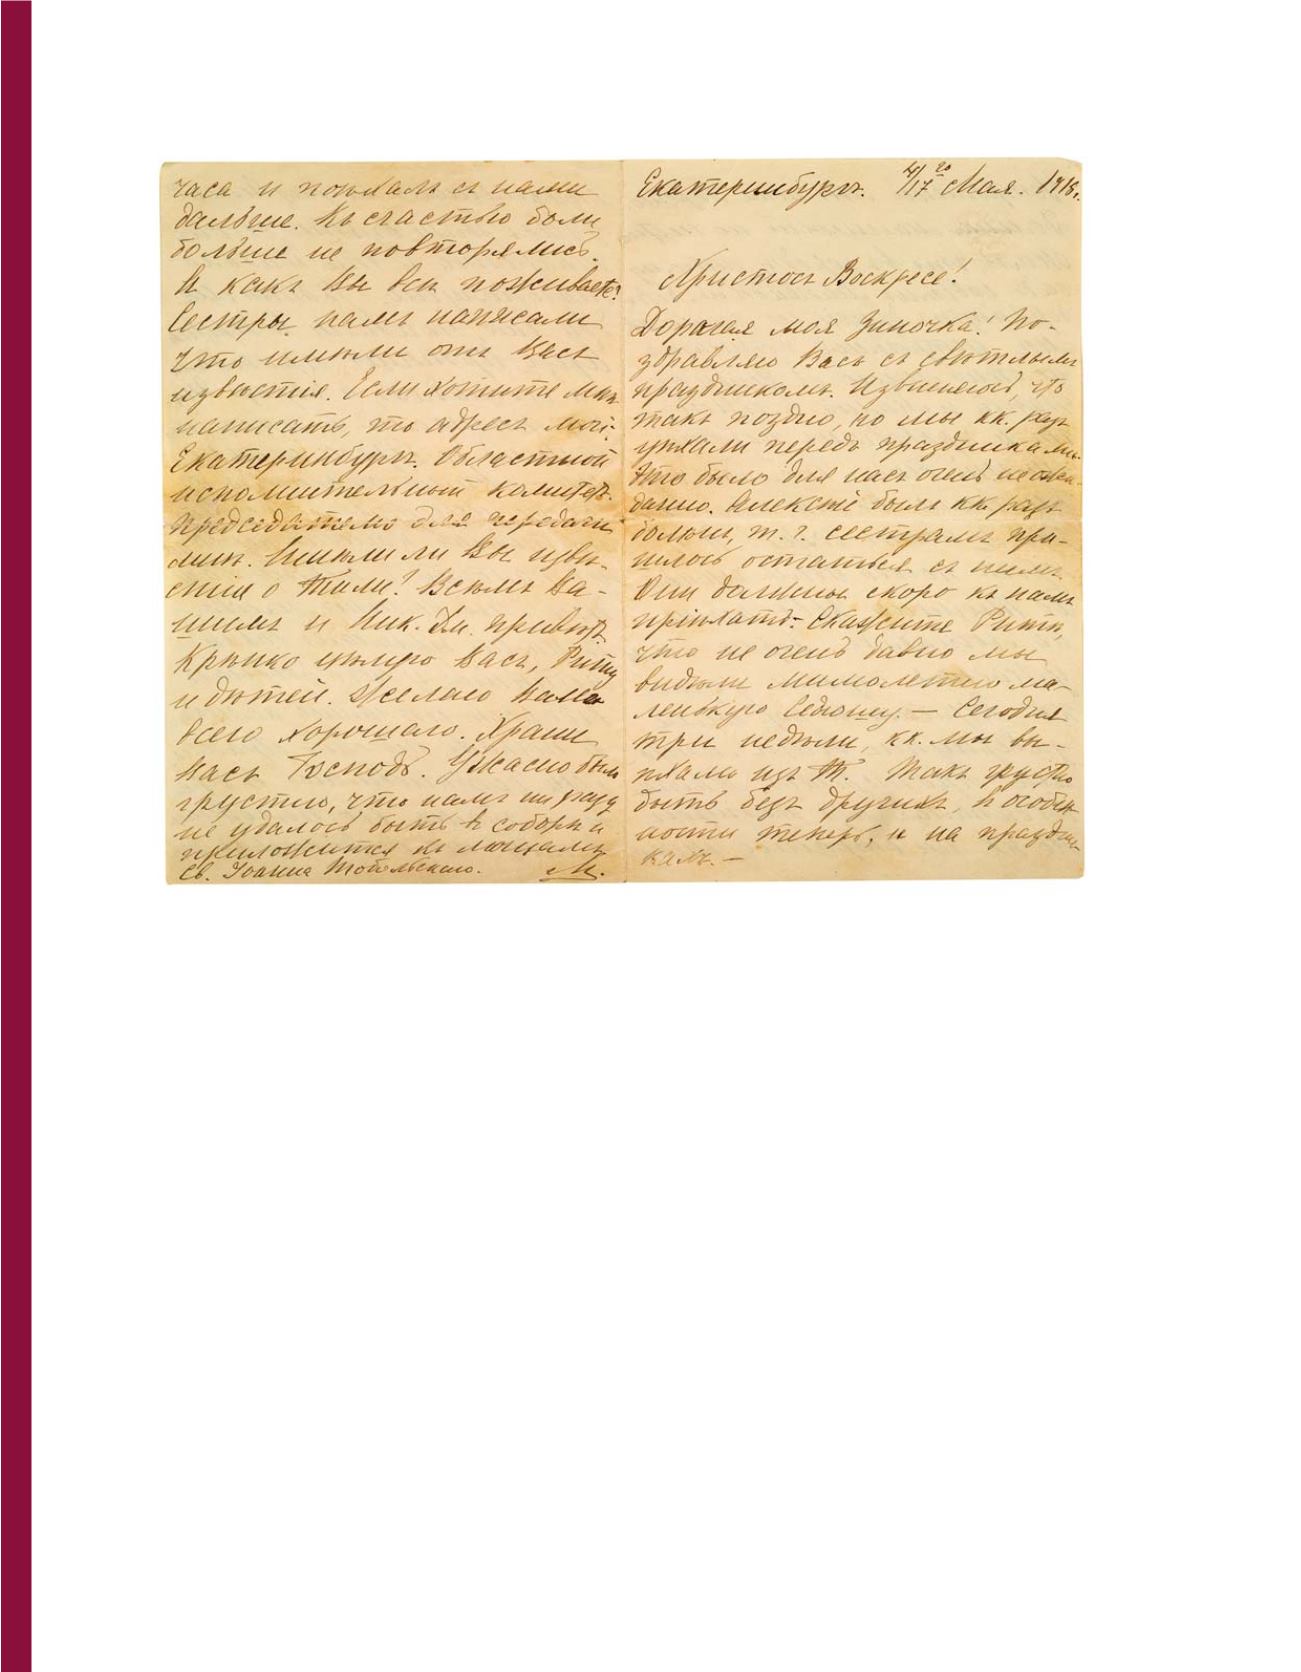 Екатеринбургъ. 4/17го Мая. 1918г.
Христосъ Воскресе!
Дорогая моя Зиночка! По-
здравляю Васъ съ свѣтлымъ
праздникомъ. Извиняюсь, что
такъ поздно, но мы кк. разъ
уѣхали передъ праздниками.
Это было для насъ очень неожи-
данно. Алексѣй былъ кк. разъ
боленъ, т. ч. сестрамъ при-
шлось остаться съ нимъ.
Они должны скоро къ намъ
пріѣхать. Скажите Ритѣ,
что не очень давно мы
видѣли мимолетно ма-
ленькую Седюшу. — Сегодня
три недѣли, кк. мы вы-
ѣхали изъ Т. Такъ грустно
быть безъ другихъ, въ особен-
ности теперь, и на праздни-
камъ. —
часа и поѣхалъ съ нами
дальше. Къ счастью боли
больше не повторялись.
А какъ Вы всѣ поживаете?
Сестры намъ написали
что имѣли отъ Васъ
извѣстія. Если хотите мнѣ
написать, то адресъ мой:
Екатеринбургъ. Областной
исполнительный комитетъ.
Предсѣдателю для передачи
мнѣ. Имѣли ли Вы извѣ-
стія о Тили? Всѣмъ Ва-
шимъ и Ник. Дм. привѣтъ.
Крѣпко цѣлую Васъ, Риту
и дѣтей. Желаю Вамъ
всего хорошаго. Храни
Васъ Господь. Ужасно было
грустно, что намъ ни разу
не удалось быть въ соборѣ и
приложится къ мощамъ
Св. Іоанна Тобольскаго. М.